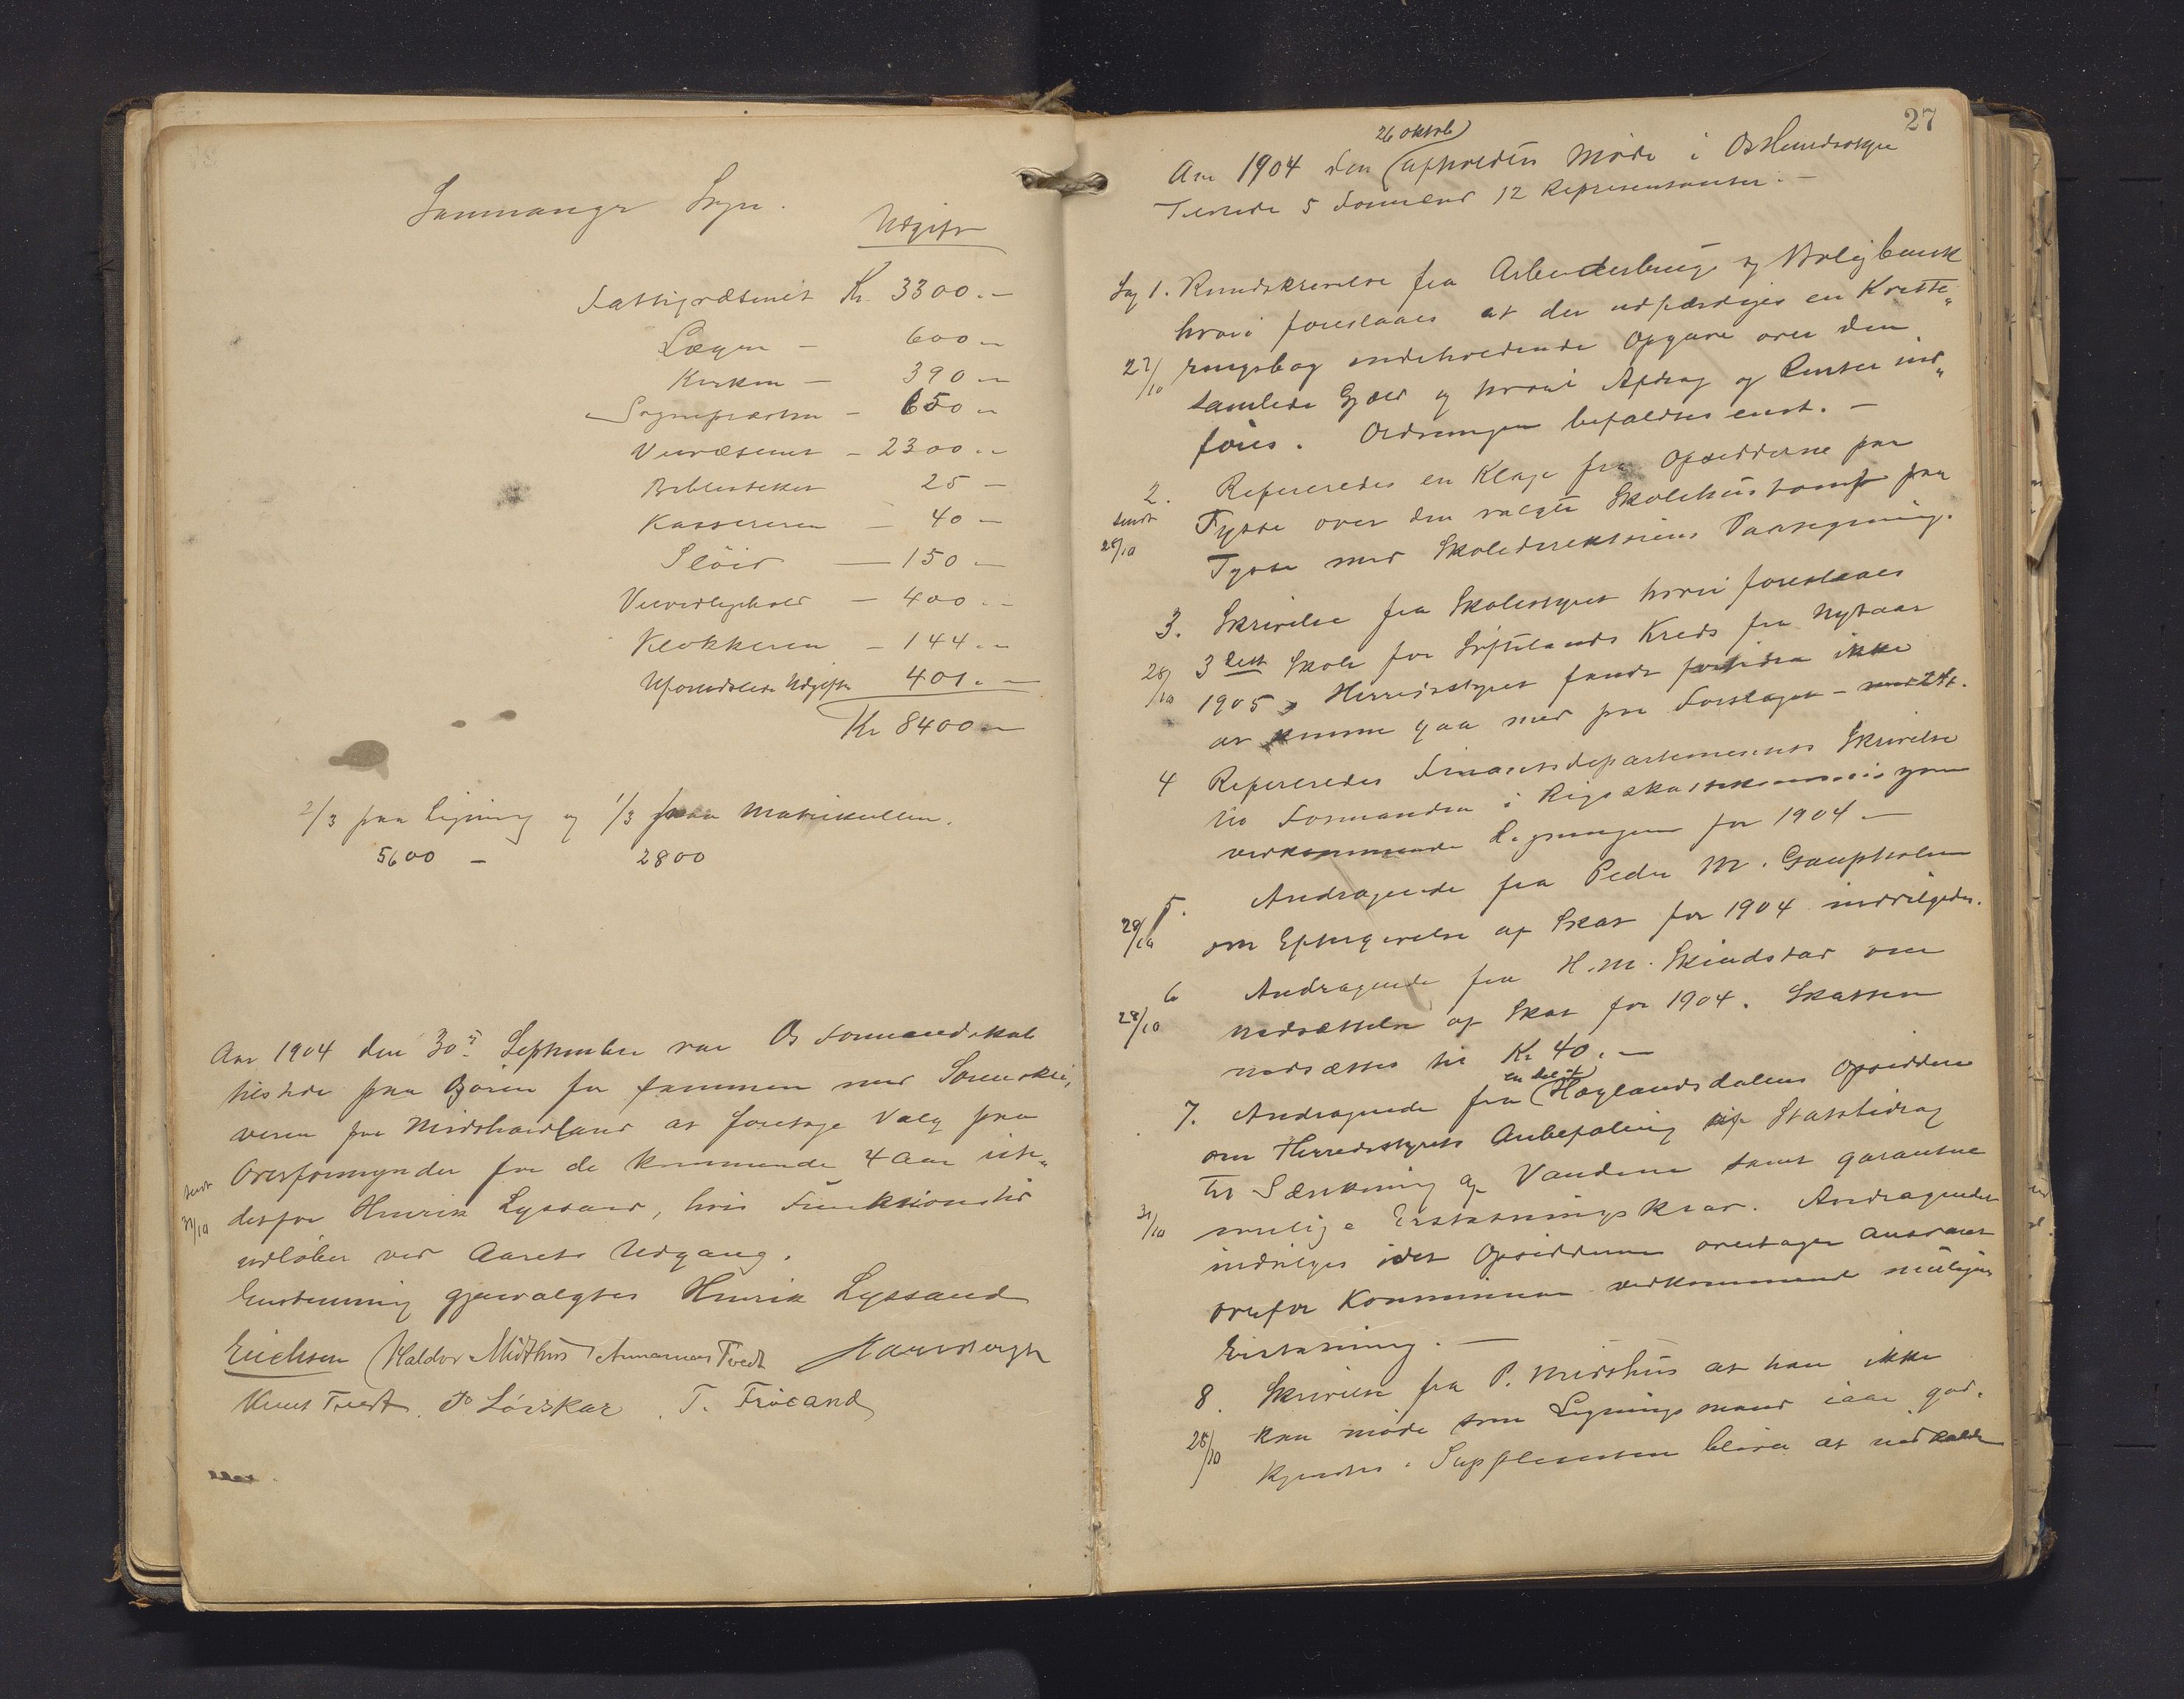 Sammanger Sogn.
Udgift
Fattigvæsenet Kr. 3300.—
Lægen — 600 —
Kirken — 390 —
Sognepresten — 650 —
Veivæsenet — 2300 —
Bibliotheket 25 —
Kassereren — 40 —
Slöid — 150 —
Veivedligehold — 400 . —
Klokkeren — 144 . —
Uforudseede Udgifter 401. —
Kr 8400 —
2/3 paa Ligning og 1/3 paa Matrikullen.
5600 — 2800
Aar 1904 den 30te September var Os Formandskab
tilstede paa Osören for sammen med Sorenskri,
veren for Midthordland at foretage Valg paa
Overformynder for de kommende 4 Aar iste„
sendt
detfor Henrik Lyssand, hvis Funktionstid
31/10
udløber ved Aarets Udgang.
Enstemmig gjenvalgtes Henrik Lyssand
Erichsen Haldor Midthus Tvedt
Knut Tvedt. Lörskar . T. Fröland
27
26 oktob
Aar 1904 den afholdtes Møde i Os Herredsstyre
Tilstede 5 Formænd 12 Representanter. —
Sag 1. Rundskrivelse fra Arbeiderbrug og Boligbank
hvori foreslaaes at der udfærdiges en Kvitte„
27/10 ringsbog indeholdende Opgave over den
samlede Gjæld og hvori Afdrag og Renter ind„
føres. Ordningen befaldtes enst. —
2. Refereredes en Klage fra Opsidderne paa
sendt Tysse over den valgte Skolehustomt paa
28/10 Tysse med Skoledirektørens Paategning.
3. Skrivelse fra Skolestyret hvori foreslaaes
3 delt Skole for Søftelands Kreds fra Nytaar
28/10 1905, Herredsstyret fandt fortiden ikke
at kunne gaa med paa Forslaget —
4 Refereredes Finantsdepartementets Skrivelse
til Formanden i
vedkommende Ligningen for 1904 —
5. Andragende fra Peder M. Gaupholm
28/10 om Eftergivelse af Skat for 1904 indvilgedes.
6 Andragende fra H. M. Skeidstad om
28/10 Nedsættelse af Skat for 1904. Skatten
nedsættes til Kr 40. —
en del af
7. Andragende fra Hæglandsdalens Opsiddere
om Herredsstyrets Anbefaling af Statsbidrag
til Sænkning af Vandene samt garantere
31/10 mulige Erstatningskrav. Andragendet
indvilges idet Opsidderne overtager Ansvaret
overfor Kommunen vedkommende muligens
Erstatning. —
8. Skrivelse fra P. Midthus at han ikke
kan møde som Ligningsmand iaar god„
28/10
kjendtes. Supplenten bliver at indkalde